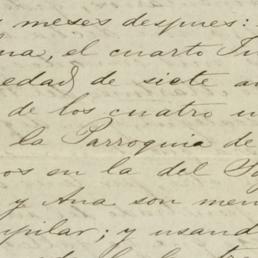 meses despues:
el cuarto
edad de siete
de los cuatro
la Parroquia de
en la del
y Ana son
pilar; y usand